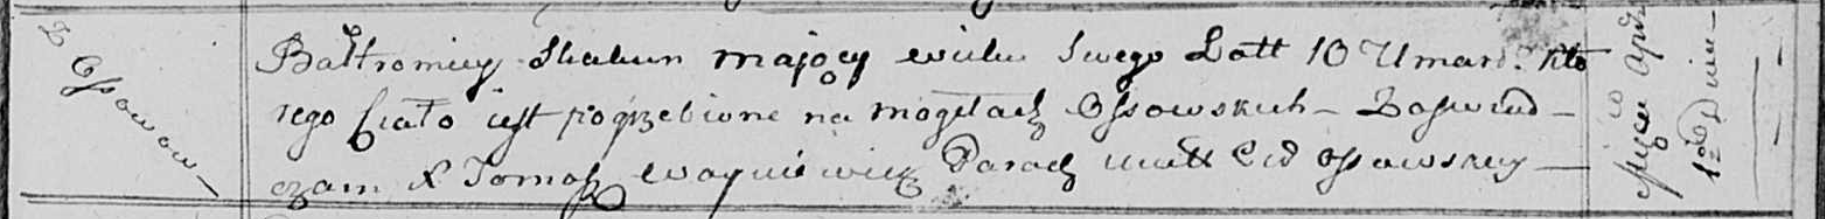 z Ossowow –
Bałtromiey Skakun maiący wieku Swego Latt 10 Umarł. Kto
rego Ciało iest pogrzebione na mogiłach Ossowskich – Zaswiad –
czam X Tomasz Woyniewicz Paroch Ossowskey –
Dnia –